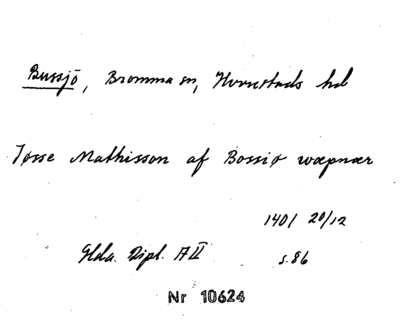 Bussjö, Bromma sn, Herrestads hd
Jøsse Mathisson af Bossiø wæpnær
1401 20/12
Glda. Dipl. A II s. 86
Nr 10624